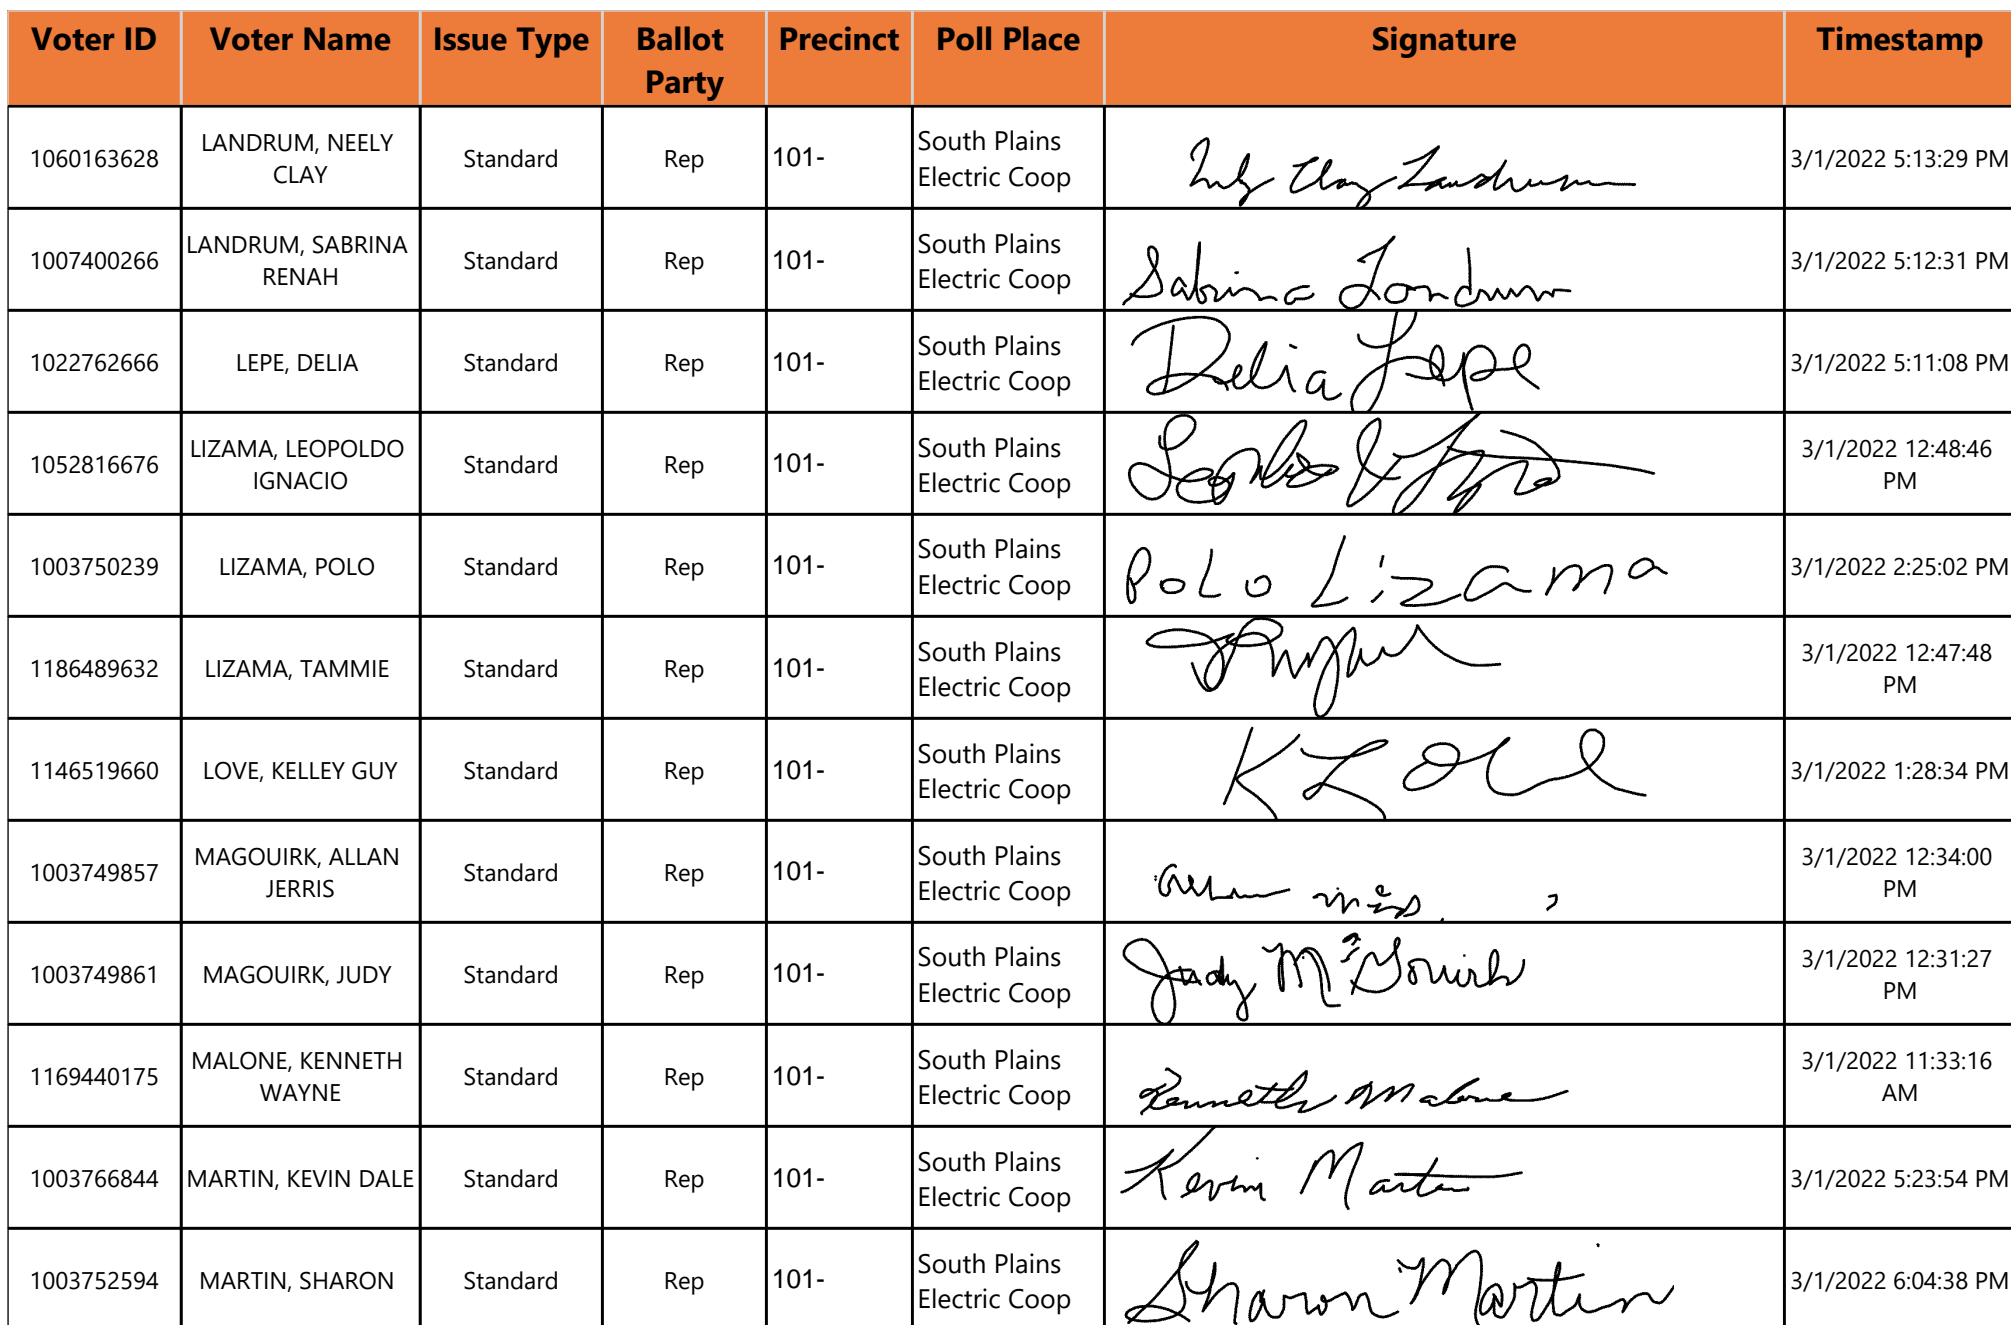 Voter ID Voter Name Issue Type Ballot Party Precinct Poll Place Signature Timestamp
1060163628 LANDRUM, NEELY CLAY Standard Rep 101- South Plains Electric Coop Clay Landrum 3/1/2022 5:13:29 PM
1007400266 LANDRUM, SABRINA RENAH Standard Rep 101- South Plains Electric Coop Sabrina Landrum 3/1/2022 5:12:31 PM
1022762666 LEPE, DELIA Standard Rep 101- South Plains Electric Coop Delia Lepe 3/1/2022 5:11:08 PM
1052816676 LIZAMA, LEOPOLDO IGNACIO Standard Rep 101- South Plains Electric Coop 3/1/2022 12:48:46 PM
1003750239 LIZAMA, POLO Standard Rep 101- South Plains Electric Coop PoLo Lizama 3/1/2022 2:25:02 PM
1186489632 LIZAMA, TAMMIE Standard Rep 101- South Plains Electric Coop 3/1/2022 12:47:48 PM
1146519660 LOVE, KELLEY GUY Standard Rep 101- South Plains Electric Coop 3/1/2022 1:28:34 PM
1003749857 MAGOUIRK, ALLAN JERRIS Standard Rep 101- South Plains Electric Coop 3/1/2022 12:34:00 PM
1003749861 MAGOUIRK, JUDY Standard Rep 101- South Plains Electric Coop Judy 3/1/2022 12:31:27 PM
1169440175 MALONE, KENNETH WAYNE Standard Rep 101- South Plains Electric Coop Kenneth Malone 3/1/2022 11:33:16 AM
1003766844 MARTIN, KEVIN DALE Standard Rep 101- South Plains Electric Coop Kevin Martin 3/1/2022 5:23:54 PM
1003752594 MARTIN, SHARON Standard Rep 101- South Plains Electric Coop Sharon Martin 3/1/2022 6:04:38 PM